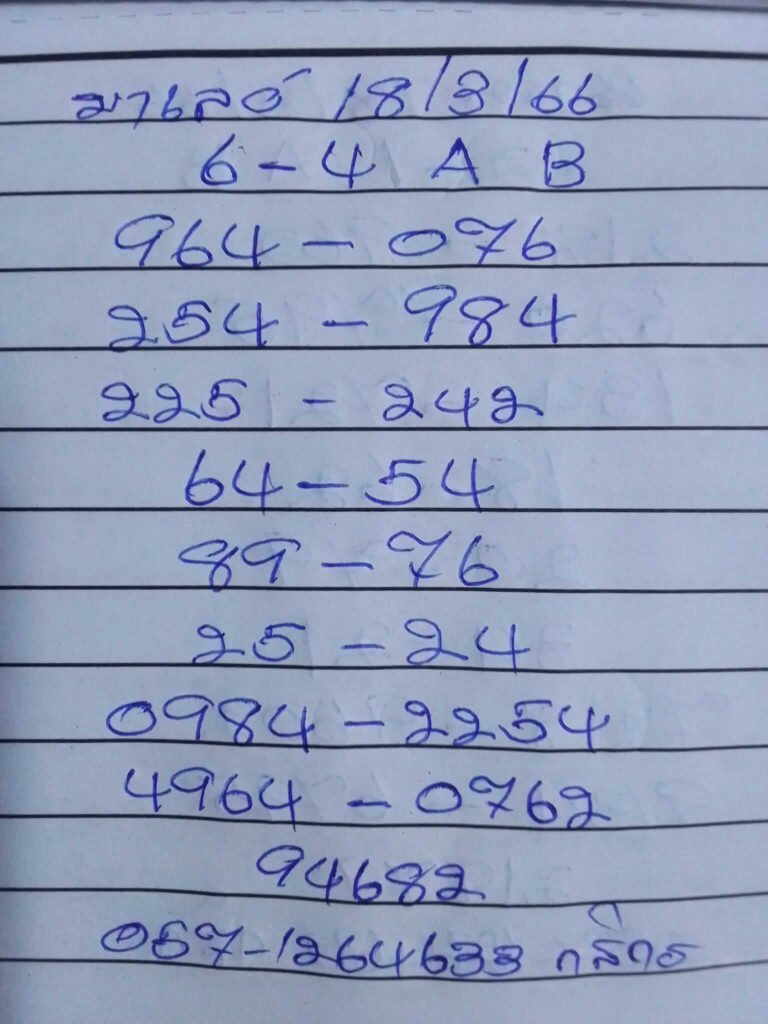 มาเลย์ 18/3/66
6-4 A B
964-076
254-984
225-242
64-54
89-76
25-24
0984-2254
4964-0762
94682
057-1264633 กสิกร